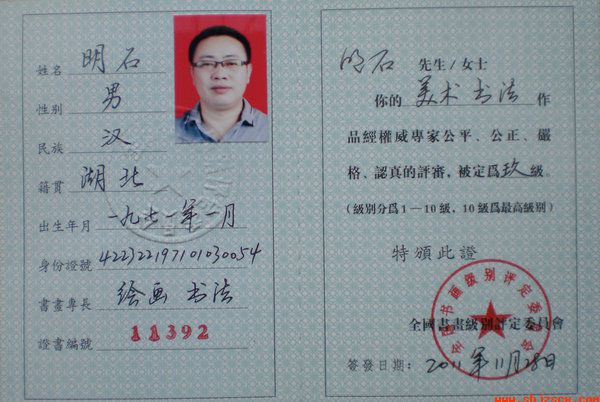 姓名 明石
性别 男
民族 汉
籍貫 湖北
出生年月 一九七一年一月
身份證號 422322197101030054
書畫專長 绘画 书法
證書編號 11392
明石 先生/女士
你的 美术 书法 作
品經權威專家公平、公正、嚴
格、認真的評審，被定爲玖級。
(級别分爲1—10級，10級爲最高級别)
特頒此證
全國書畫級别評定委員會
全国书画级别评定委员会
簽發日期：2011年11月28日
www.SDJZSCW.COM